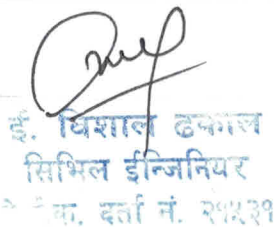 ई. विशाल ढकाल
सिभिल ईन्जिनियर
क. दर्ता नं.